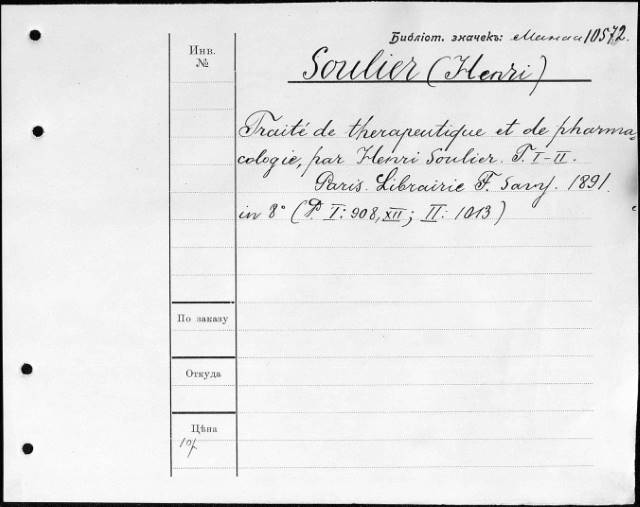 Библіот. значекъ: 10572.
Инв.
№
Soulier (Henri)
Traité de therapeutique et de pharma-
cologie, par Henri Soulier. T. I-II.
Paris. Librairie F. Savy. 1891.
in 8° (P. I: 908, XII; II: 1013)
По заказу
Откуда
Цѣна